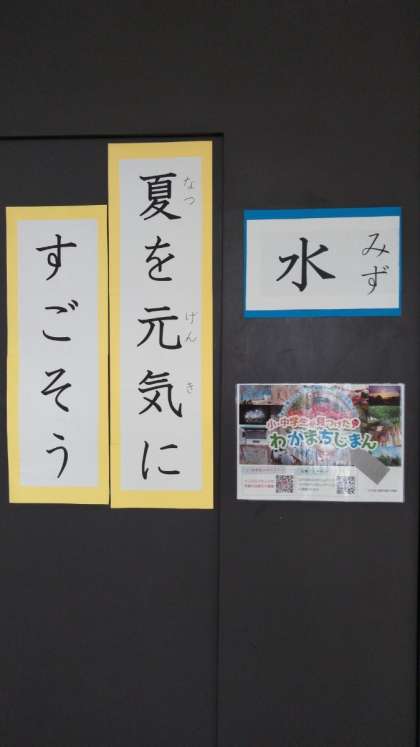 水
みず
夏を元気に
なつ
げん
き
すごそう
小・中学生が見つけた
わがまちじまん